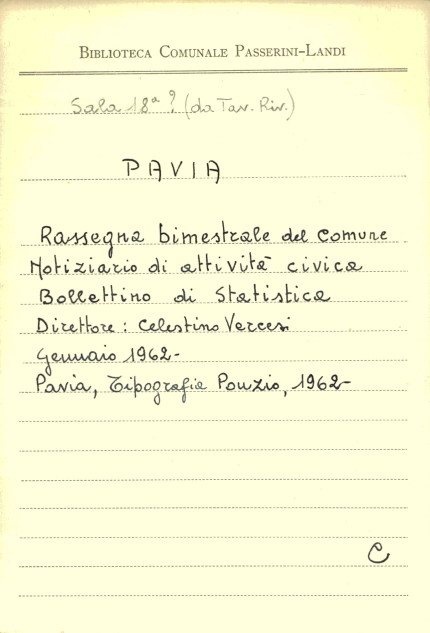 Biblioteca Comunale Passerini-Landi
Sala 18ª ? (da Tav. Riv.)
PAVIA
Rassegna bimestrale del Comune
Notiziario di attività civica
Bollettino di Statistica
Direttore: Celestino Vercesi
Gennaio 1962-
Pavia, Tipografia Ponzio, 1962-
C